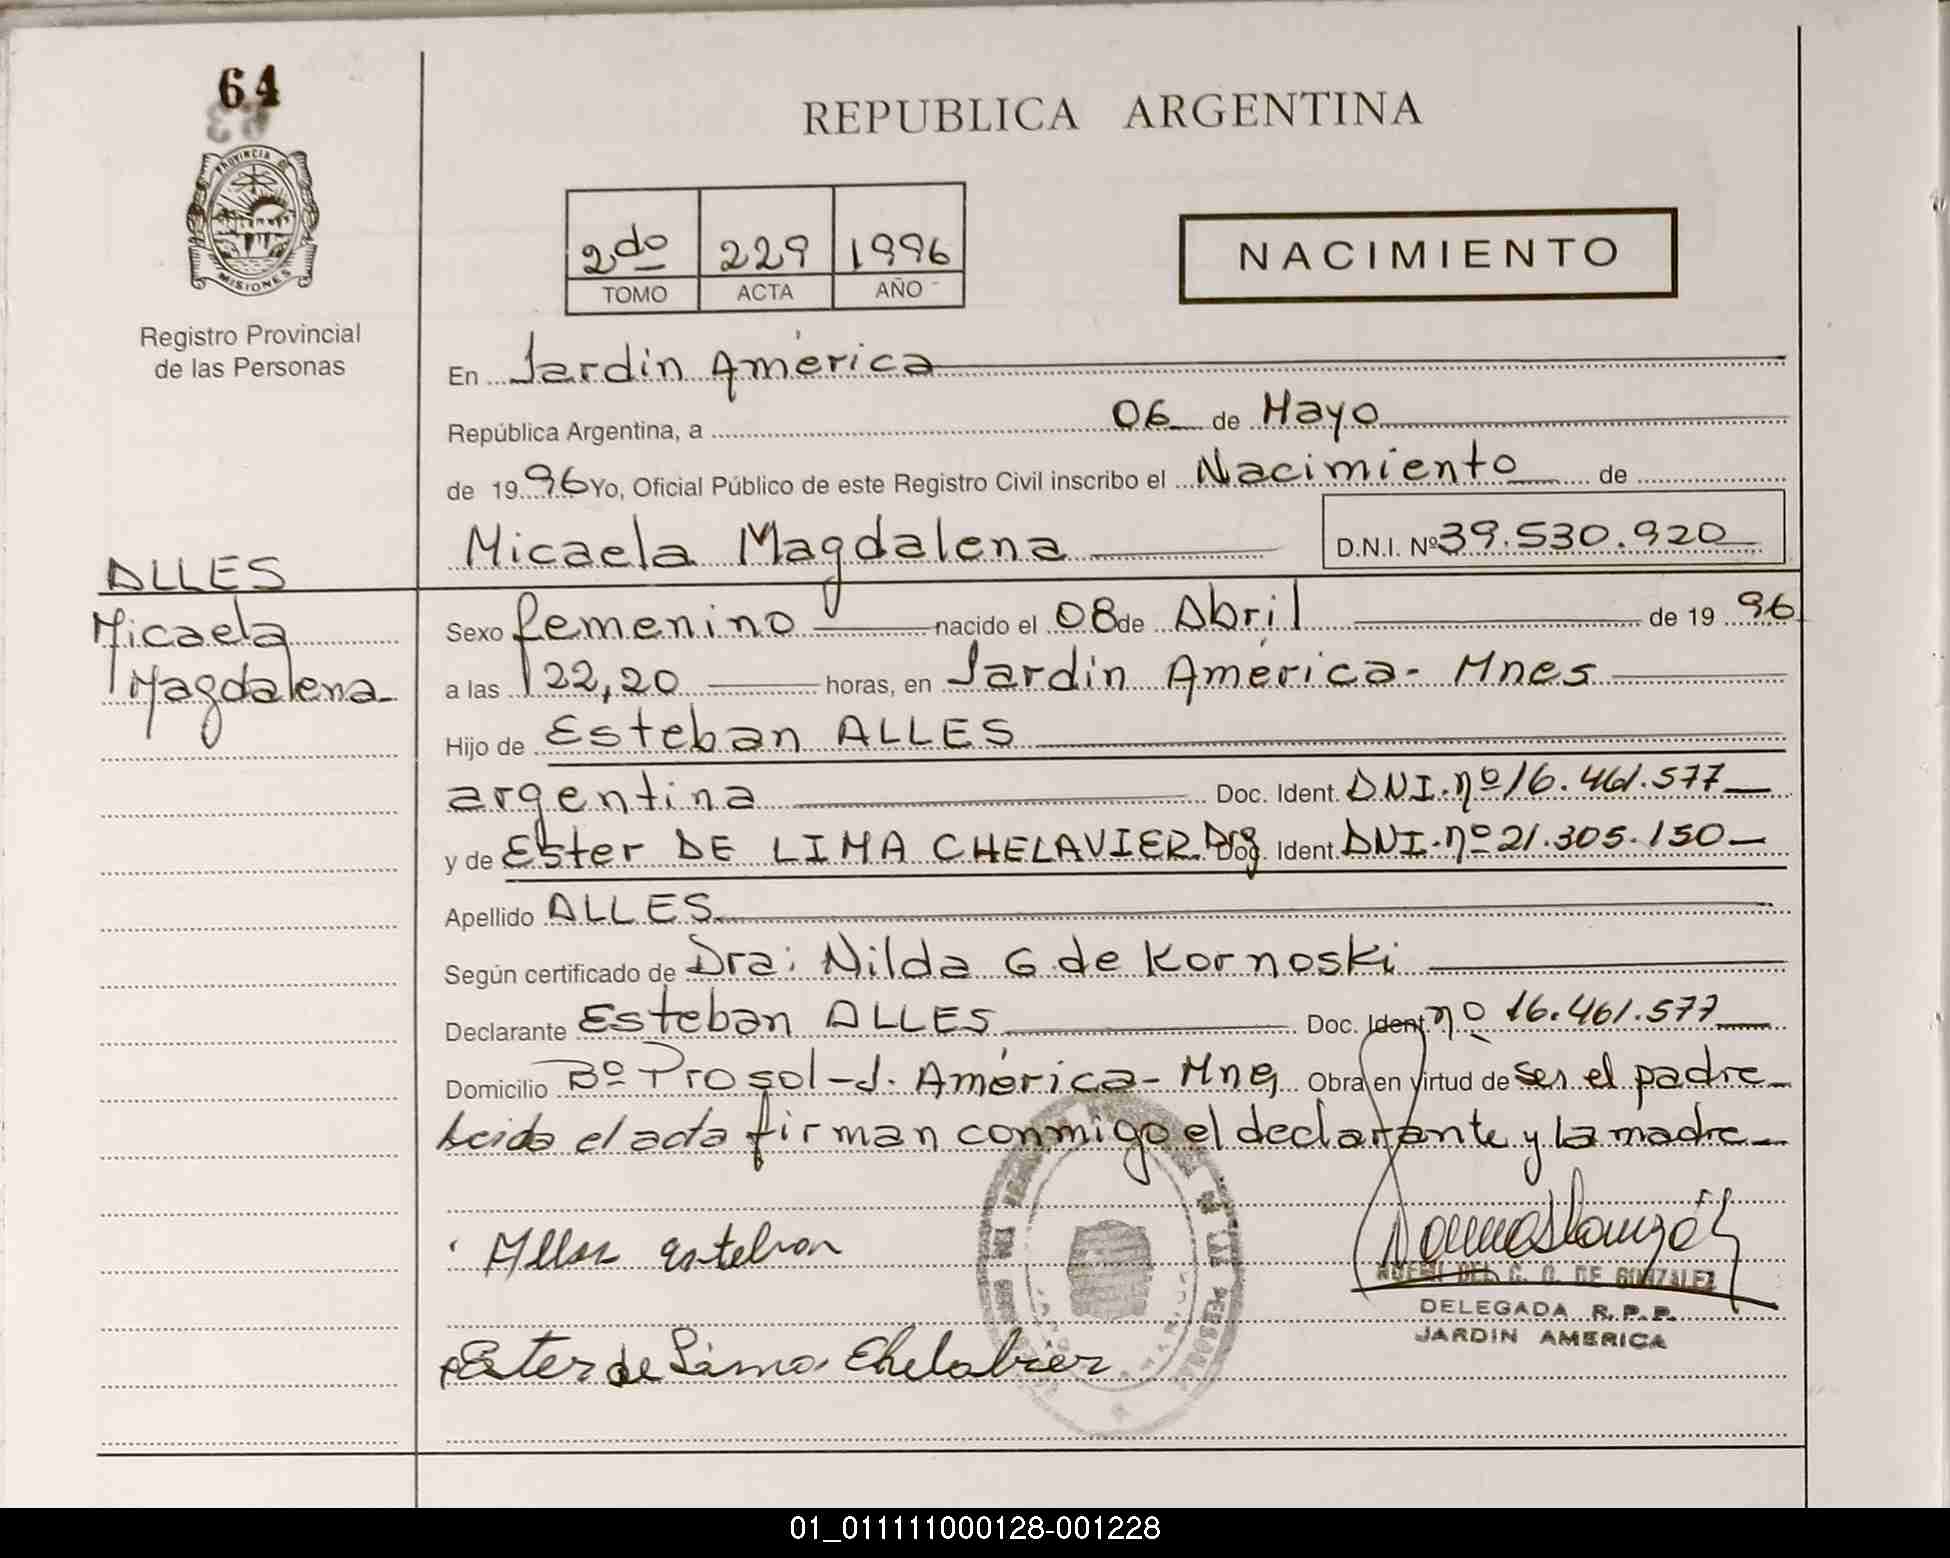 64
REPUBLICA ARGENTINA
PROVINCIA DE
MISIONES
Registro Provincial
de las Personas
2do 229 1996
TOMO ACTA AÑO
NACIMIENTO
En Jardín América
República Argentina, a 06 de Mayo
de 1996 Yo, Oficial Público de este Registro Civil inscribo el Nacimiento de
Micaela Magdalena D.N.I. Nº 39.530.920
ALLES
Micaela
Magdalena
Sexo femenino nacido el 08 de Abril de 1996
a las 22,20 horas, en Jardín América - Mnes
Hijo de Esteban ALLES
argentina Doc. Ident. DNI. nº 16.461.577
y de Ester DE LIMA CHELAVIER Arg Doc. Ident. DNI. nº 21.305.150
Apellido ALLES
Según certificado de Dra: Nilda G de Kornoski
Declarante Esteban ALLES Doc. Ident. nº 16.461.577
Domicilio Bº Prosol - J. América - Mnes Obra en virtud de ser el padre
Leida el acta firman conmigo el declarante y la madre
Alles esteban
NOEMI DEL C. O. DE GONZALEZ
DELEGADA R.P.P.
JARDIN AMERICA
Ester de Lima Chelabier
01_011111000128-001228